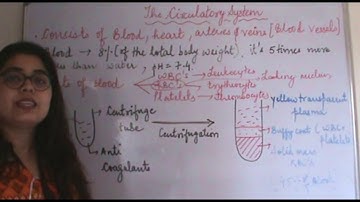 The Circulatory System
. Consists of Blood, heart, arteries & veins [Blood vessels]
Blood → 8% (of the total body weight), it's 5 times more
than water, pH = 7.4
of blood
WBC's → Leukocytes
RBC's → Erythrocyte
Platelets → thrombocytes
nucleus
Centrifuge
tube
Anti
Coagulants
Centrifugation
yellow transparent
plasma
Buffy coat (WBC
Platelets)
Solid mass
RBC's
of Blood